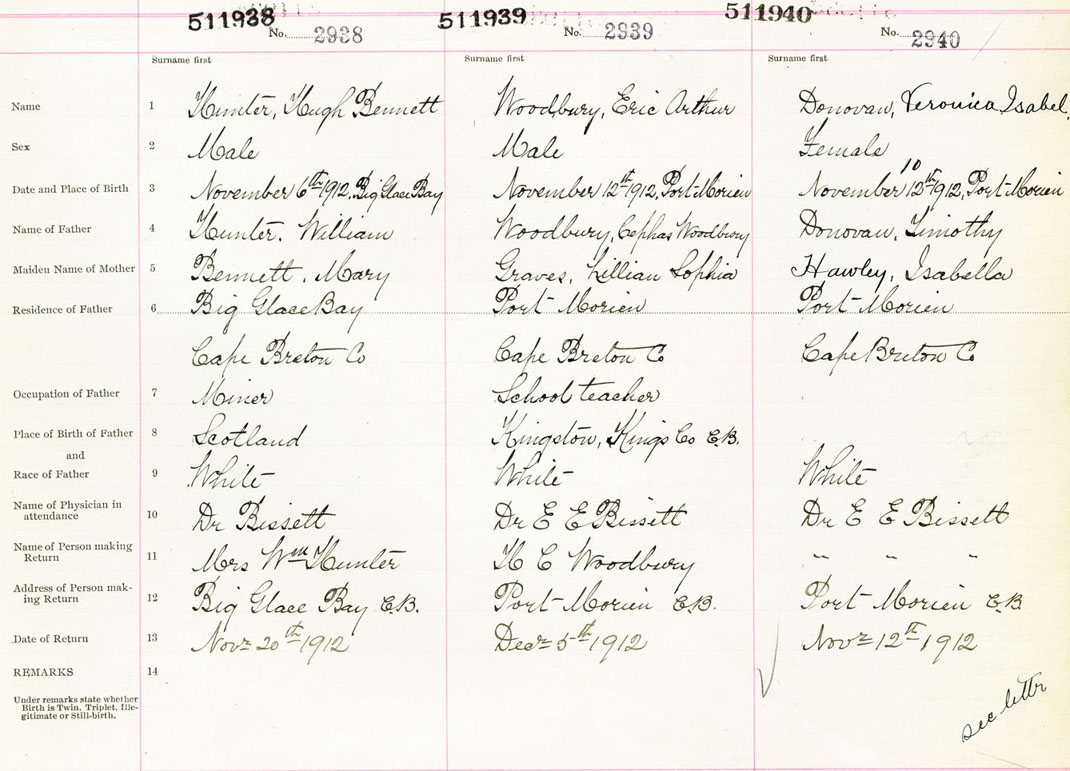 511938 511939 511940
No. 2938 No. 2939 No. 2940
Surname first Surname first Surname first
Name 1 Hunter, Hugh Bennett Woodbury, Eric Arthur Donovan, Veronica Isabel.
Sex 2 Male Male Female
10
Date and Place of Birth 3 November 6th 1912, Big Glace Bay November 12th 1912, Port Morien November 12th 1912, Port Morien
Name of Father 4 Hunter. William Woodbury, Cephas Woodbury Donovan, Timothy
Maiden Name of Mother 5 Bennett. Mary Graves, Lillian Sophia Hawley, Isabella
Residence of Father 6 Big Glace Bay Port Morien Port Morien
Cape Breton Co Cape Breton Co Cape Breton Co
Occupation of Father 7 Miner School teacher
Place of Birth of Father 8 Scotland Kingston, Kings Co C.B.
and
Race of Father 9 White White White
Name of Physician in
attendance 10 Dr Bissett Dr E E Bissett Dr E E Bissett
Name of Person making
Return 11 Mrs Wm Hunter H C Woodbury " " "
Address of Person mak-
ing Return 12 Big Glace Bay C.B. Port Morien C.B. Port Morien C.B
Date of Return 13 Novr 20th 1912 Decr 5th 1912 Novr 12th 1912
REMARKS 14
Under remarks state whether
Birth is Twin, Triplet, Ille-
gitimate or Still-birth.
see letter